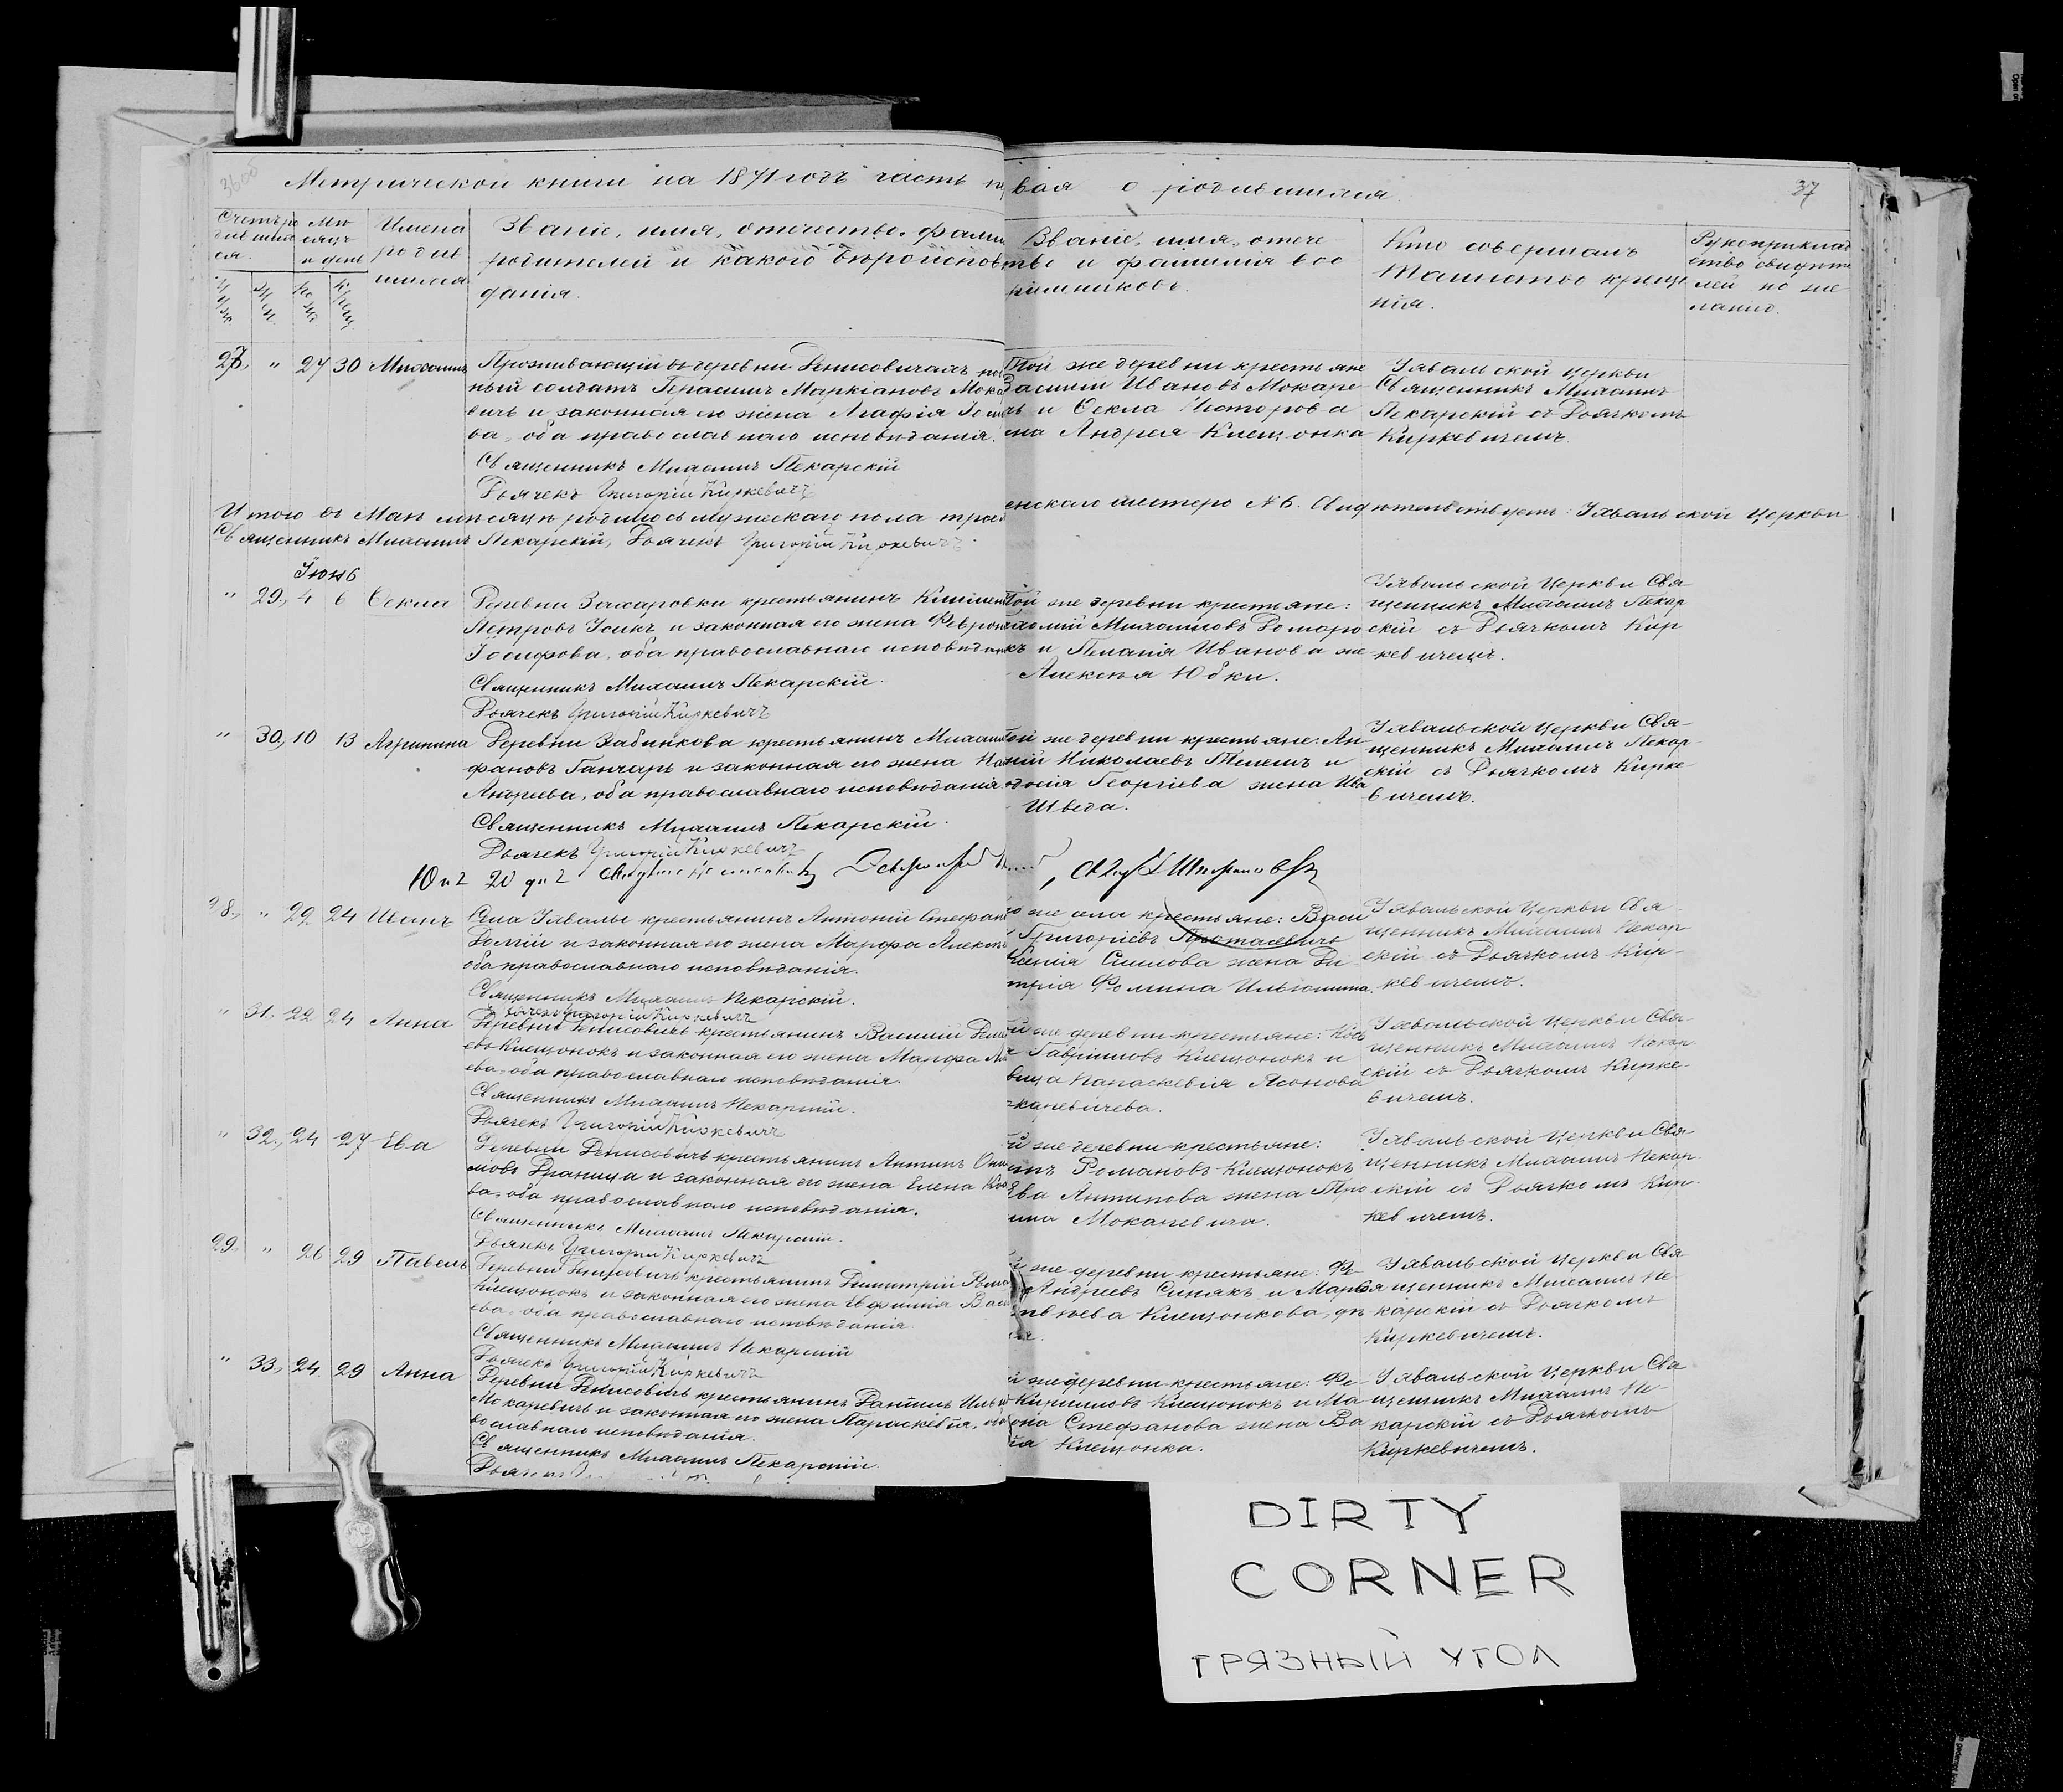 Метрической книги на 1871 годъ часть первая о родившихся
37
Счетъ ро
дивших
ся.
Мѣ
сяцъ
и день
Имена
родив
шихся
Званіе, имя, отечество, фами
родителей и какого вѣроиспов
данія.
Званіе, имя, отече
ство и фамилія вос
пріемниковъ.
Кто совершалъ
Таинство креще
нія.
Рукоприклад
ство свидѣте
лей по же
ланію.
27, " 24 30 Михаилъ
Проживающій въ деревни Денисовичахъ
ный солдатъ Герасимъ Маркіановъ Мока
вичъ и законная его жена Агафія
ва, оба православнаго исповѣданія.
Священникъ Михаилъ Пекарскій
Дьячекъ Григорій Киркевичъ
Той же деревни крестьяне
Василій Ивановъ Мокаре
и Ѳекла Несторова
на Андрея Клещонка
Уявальской церкви
Священникъ Михаилъ
Пекарскій съ Дьячкомъ
Киркевичемъ.
Итого въ Маѣ мѣсяцѣ родилось мужескаго пола трое
енскаго шестеро №6. Свидѣтельствуетъ: Уявальской Церкви
Священникъ Михаилъ Пекарскій, Дьячекъ Григорій Киркевичъ.
Іюнь
" 29, 4 6 Ѳекла
Деревни Захаровки крестьянинъ
Петровъ Усикъ и законная его жена Феврон
Іосифова, оба православнаго исповѣдан
Священникъ Михаилъ Пекарскій.
Дьячекъ Григорій Киркевичъ
Той же деревни крестьяне:
Михаиловъ
и Пелагія Иванова же
Алексѣя Юбки.
Уявальской Церкви Свя-
щенникъ Михаилъ Пекар
скій съ Дьячкомъ Кир
кевичемъ.
" 30, 10 13 Агрипина
Деревни Забинкова крестьянинъ Михаил
фановъ Ганчаръ и законная его жена На
Андреева, оба православнаго исповѣданія.
Священникъ Михаилъ Пекарскій.
Дьячекъ Григорій Киркевичъ
Той же деревни крестьяне: Ан
ній Николаевъ Телешъ и
досія Георгіева жена Ива
Шведа.
Уявальской Церкви Свя-
щенникъ Михаилъ Пекар-
скій съ Дьячкомъ Кирке
вичемъ.
28, " 22 24 Иванъ
Села Уявалы крестьянинъ Антоній Стефан
Долгій и законная его жена Марфа Алексѣ
оба православнаго исповѣданія.
Священникъ Михаилъ Пекарскій.
Дьячекъ Григорій Киркевичъ
же села крестьяне: Васи
Григоріевъ Протасевичъ
Ксенія Силлова жена Ди
митрія Фомина Ильюшина.
Уявальской Церкви Свя-
щенникъ Михаилъ Пекар
скій съ Дьячкомъ Кир-
кевичемъ.
" 31, 22 24 Анна
Деревни Денисовичъ крестьянинъ Василій
евъ Клещонокъ и законная его жена Марфа
ева, оба православнаго исповѣданія.
Священникъ Михаилъ Пекарскій.
Дьячекъ Григорій Киркевичъ
же деревни крестьяне:
Гавріиловъ Клещонокъ и
вица Параскевія Ясонова
Уявальской Церкви Свя-
щенникъ Михаилъ Пекар-
скій съ Дьячкомъ Кирке-
вичемъ.
" 32, 24 27 Ева
Деревни Денисовичъ крестьянинъ Антипъ
мовъ Драница и законная его жена Елена
ва, оба православнаго исповѣданія.
Священникъ Михаилъ Пекарскій.
Дьячекъ Григорій Киркевичъ
же деревни крестьяне:
Романовъ Клещонокъ
Ева Антипова жена Тро
Мокаревича.
Уявальской Церкви Свя
щенникъ Михаилъ Пекар-
скій съ Дьячкомъ Кир-
кевичемъ.
29, " 26 29 Павелъ
Деревни Денисовичъ крестьянинъ Димитрій
Клещонокъ и законная его жена Евфимія Васи
ева, оба православнаго исповѣданія.
Священникъ Михаилъ Пекарскій
Дьячекъ Григорій Киркевичъ
же деревни крестьяне:
Андреевъ Синякъ и Марѳа
Клещонкова, дѣ
Уявальской Церкви Свя-
щенникъ Михаилъ Пе-
карскій съ Дьячкомъ
Киркевичемъ.
" 33, 24 29 Анна
Деревни Денисовичъ крестьянинъ Даніилъ
Мокаревичъ и законная его жена Параскевія,
вославнаго исповѣданія.
Священникъ Михаилъ Пекарскій.
же деревни крестьяне:
Кирилловъ Клещонокъ и Ма
Стефанова жена Ва
Клещонка.
Уявальской Церкви Свя
щенникъ Михаилъ Пе-
карскій съ Дьячкомъ
Киркевичемъ.
DIRTY
CORNER
ГРЯЗНЫЙ УГОЛ